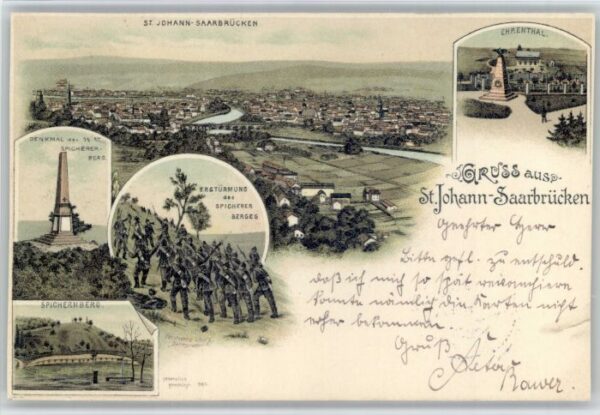 ST. JOHANN-SAARBRÜCKEN
EHRENTHAL.
DENKMAL
SPICHERER-
BERG.
ERSTÜRMUNG
DES
SPICHERER
BERGES
SPICHERNBERG.
GRUSS aus
St. Johann-Saarbrücken
Geehrter Herr
Bitte gefl. zu entschuld.
daß ich mich so spät revanchiere
konnte nämlich die Karten nicht
eher bekommen
Gruß